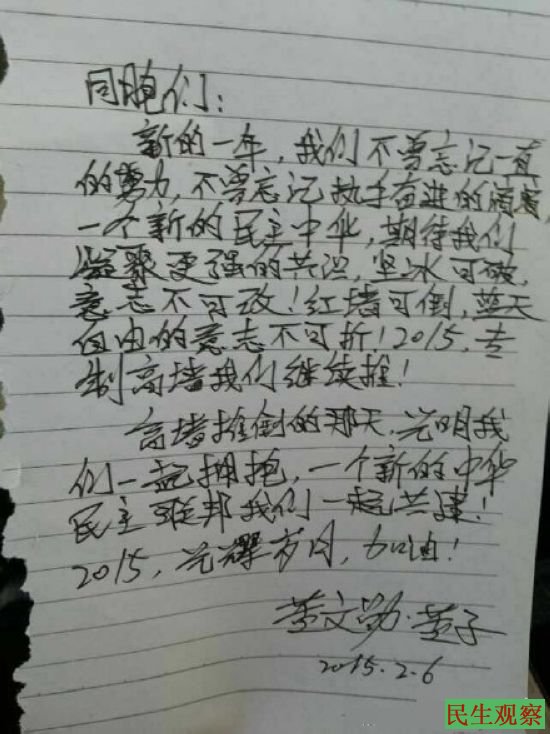 同胞们：
新的一年，我们不曾忘记一直
的努力，不曾忘记执手奋进的
一个新的民主中华，期待我们
凝聚更强的共识，坚冰可破，
意志不可改！红墙可倒，蓝天
自由的意志不可折！2015，专
制高墙我们继续推！
高墙推倒的那天，光明我
们一起拥抱，一个新的中华
民主联邦我们一起共建！
2015，光耀岁月，加油！
黄文勋·黄子
2015.2.6
民生观察